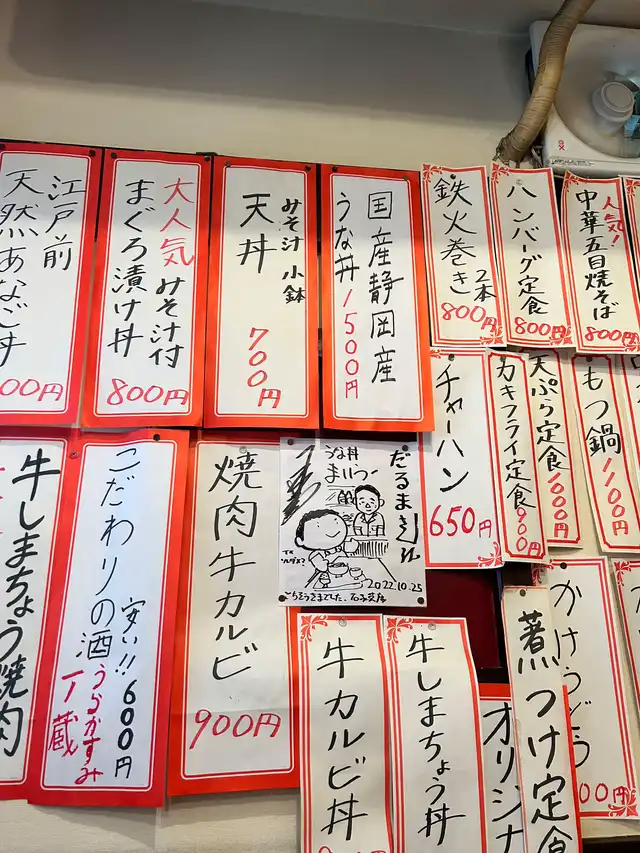 江戸前
天然あなご丼
00円
大人気
みそ汁付
まぐろ漬け丼
800円
みそ汁 小鉢
天丼
700円
国産静岡産
うな丼
1500円
鉄火巻き
2本
800円
ハンバーグ定食
800円
人気!
中華五目焼そば
800円
チャーハン
650円
カキフライ定食
900円
天ぷら定食
1000円
もつ鍋
1100円
牛しまちょう焼肉
こだわりの酒
安い!!600円
うらかすみ
一蔵
焼肉牛カルビ
900円
うな丼
まいうー
だるまさん
2022.10.25
ごちそうさまでした。
牛カルビ丼
牛しまちょう丼
オリジナ
煮つけ定食
かけうどん
00円